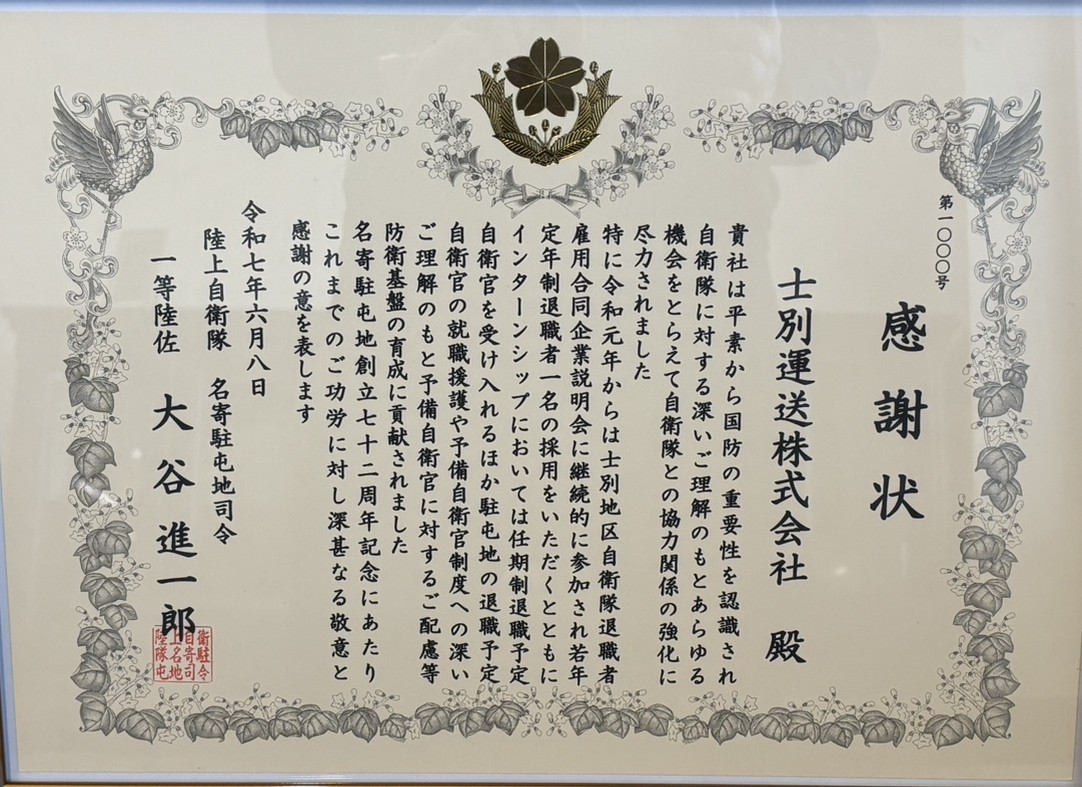 第一〇〇〇号
感謝状
士別運送株式会社 殿
貴社は平素から国防の重要性を認識され
自衛隊に対する深いご理解のもとあらゆる
機会をとらえて自衛隊との協力関係の強化に
尽力されました
特に令和元年からは士別地区自衛隊退職者
雇用合同企業説明会に継続的に参加され若年
定年制退職者一名の採用をいただくとともに
インターンシップにおいては任期制退職予定
自衛官を受け入れるほか駐屯地の退職予定
自衛官の就職援護や予備自衛官制度への深い
ご理解のもと予備自衛官に対するご配慮等
防衛基盤の育成に貢献されました
名寄駐屯地創立七十二周年記念にあたり
これまでのご功労に対し深甚なる敬意と
感謝の意を表します
令和七年六月八日
陸上自衛隊 名寄駐屯地司令
一等陸佐 大谷進一郎
衛駐令
自寄司
上名地
陸隊屯